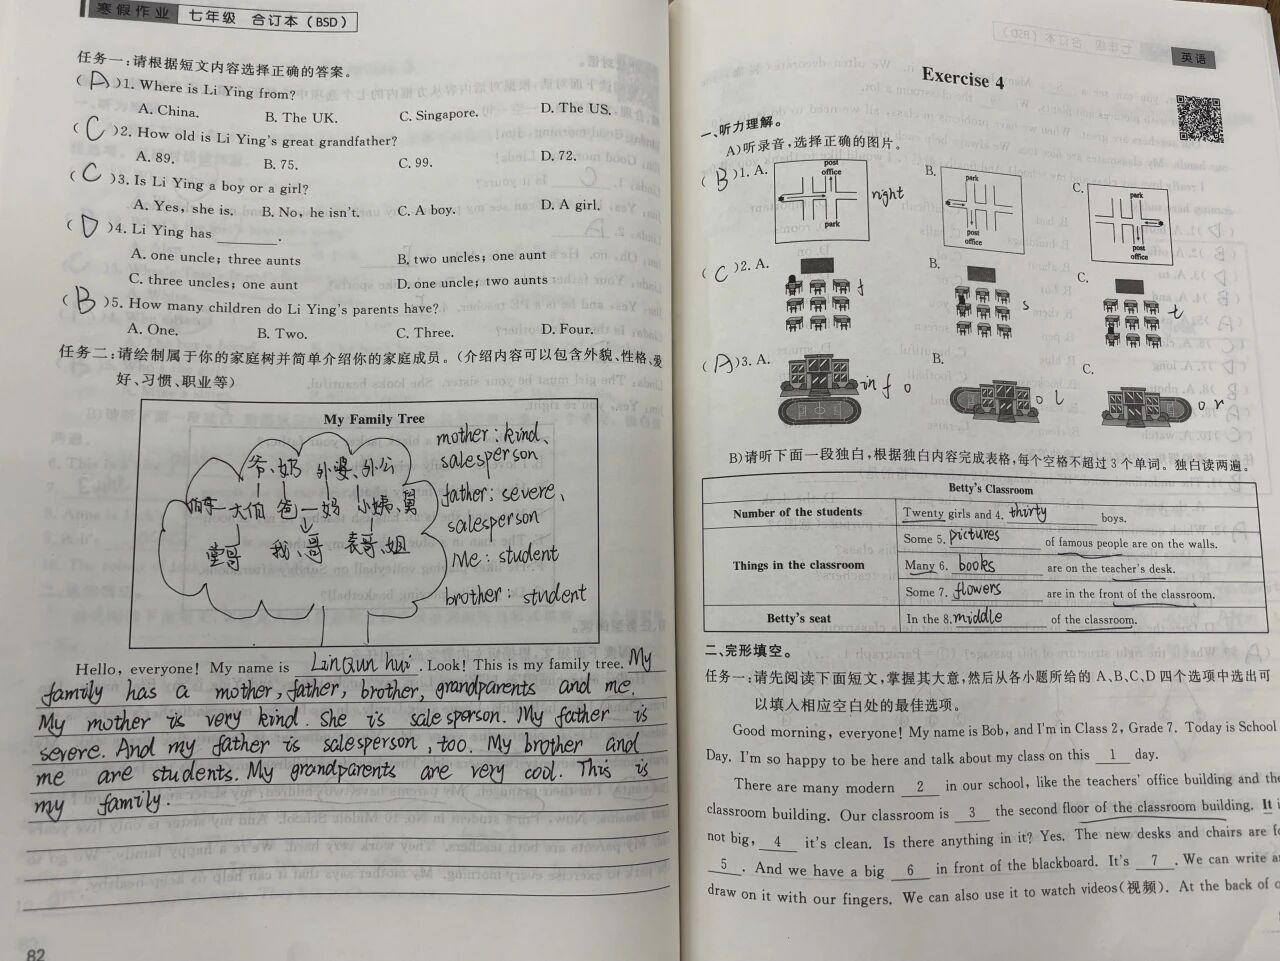 寒假作业 七年级 合订本(BSD)
任务一:请根据短文内容选择正确的答案。
( A )1. Where is Li Ying from?
A. China. B. The UK. C. Singapore. D. The US.
( C )2. How old is Li Ying's great grandfather?
A. 89. B. 75. C. 99. D. 72.
( C )3. Is Li Ying a boy or a girl?
A. Yes, she is. B. No, he isn't. C. A boy. D. A girl.
( D )4. Li Ying has ______.
A. one uncle; three aunts B. two uncles; one aunt
C. three uncles; one aunt D. one uncle; two aunts
( B )5. How many children do Li Ying's parents have?
A. One. B. Two. C. Three. D. Four.
任务二:请绘制属于你的家庭树并简单介绍你的家庭成员。(介绍内容可以包含外貌、性格、爱
好、习惯、职业等)
My Family Tree
爷、奶 外婆、外公
大伯 爸一妈 小姨、舅
堂哥 我、哥 表哥、姐
mother: kind、
salesperson
father: severe、
salesperson
Me: student
brother: student
Hello, everyone! My name is LinQun hui . Look! This is my family tree. My
family has a mother, father, brother, grandparents and me.
My mother is very kind. She is salesperson. My father is
severe. And my father is salesperson, too. My brother and
me are students. My grandparents are very cool. This is
my family.
82
英语
Exercise 4
一、听力理解。
A)听录音,选择正确的图片。
( B )1. A. B. C.
post office
park
right
park
post office
park
post office
( C )2. A. B. C.
f s t
( A )3. A. B. C.
in f o o l o r
B)请听下面一段独白,根据独白内容完成表格,每个空格不超过 3 个单词。独白读两遍。
Betty's Classroom
Number of the students Twenty girls and 4. thirty boys.
Things in the classroom Some 5. pictures of famous people are on the walls.
Many 6. books are on the teacher's desk.
Some 7. flowers are in the front of the classroom.
Betty's seat In the 8. middle of the classroom.
二、完形填空。
任务一:请先阅读下面短文,掌握其大意,然后从各小题所给的 A、B、C、D 四个选项中选出可
以填入相应空白处的最佳选项。
Good morning, everyone! My name is Bob, and I'm in Class 2, Grade 7. Today is School
Day. I'm so happy to be here and talk about my class on this 1 day.
There are many modern 2 in our school, like the teachers' office building and the
classroom building. Our classroom is 3 the second floor of the classroom building. It
not big, 4 it's clean. Is there anything in it? Yes. The new desks and chairs are
5 . And we have a big 6 in front of the blackboard. It's 7 . We can write
draw on it with our fingers. We can also use it to watch videos(视频). At the back of